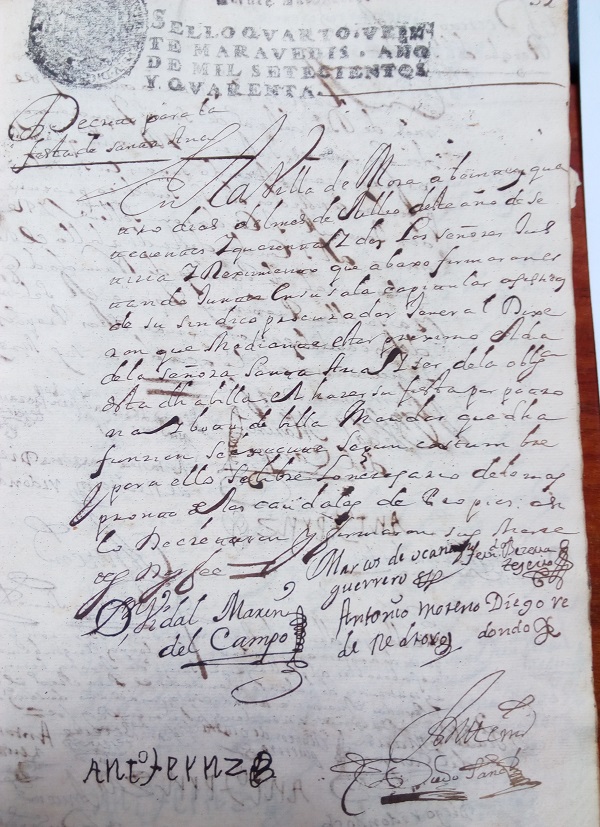 SELLO QVARTO, VEIN-
TE MARAVEDIS, AÑO
DE MIL SETECIENTOS
Y QVARENTA.
Decreto para la
fiesta de Santa Ana
En la Villa de Mora a beinte y qua
tro dias del mes de Jullio deste año de se
tecientos y quarenta y dos los Señores Jus
ticia y Reximiento que abaxo firmaron es
tando juntos en su sala capitular
de su sindico procurador General Dixe
ron que Mediante estar proximo el dia
de la Señora Santa Ana y ser de la
esta dha billa el hazer su fiesta por patro
na y boto de billa Mandan que dha
funzion se execute segun costumbre
y para ello se libre lo nezesario de lo mas
pronto de los caudales de Propios: asi
lo Decretaron y firmaron sus Merce
des Doy fee
Marcos de ocaña
guerrero
Dn Vidal Marin
del Campo
Antonio moreno
de Pedrova
Diego re
dondo
Antº fernz
Ante mi
Diego Sanz